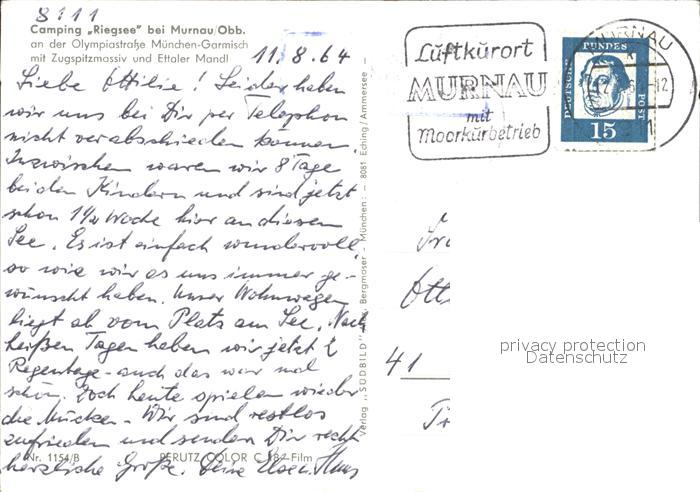 8111
Camping „Riegsee" bei Murnau/Obb.
an der Olympiastraße München-Garmisch
mit Zugspitzmassiv und Ettaler Mandl
11.8.64
Liebe Ottilie! Leider haben
wir uns bei Dir per Telephon
nicht verabschieden können.
Inzwischen waren wir 8 Tage
bei den Kindern und sind jetzt
schon 1½ Woche hier an diesem
See. Es ist einfach wundervoll,
so wie wir es uns immer ge-
wünscht haben. Unser Wohnwagen
liegt ab vom Platz am See. Nach
heißen Tagen haben wir jetzt 2
Regentage - auch das war mal
schön. Doch heute spielen wieder
die Mücken. Wir sind restlos
zufrieden und senden Dir recht
herzliche Grüße. Deine Else u. Hans
Nr. 1154/B
PERUTZ COLOR C 18-Film
Verlag „SÜDBILD" Bergmoser - München: - 8081 Eching/Ammersee -
Luftkurort
MURNAU
mit
Moorkurbetrieb
MURNAU
DEUTSCHE
BUNDES
POST
15
Ott
41
privacy protection
Datenschutz